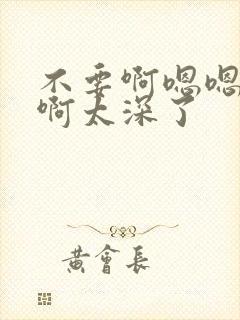 不要啊嗯嗯
啊太深了
黄會長